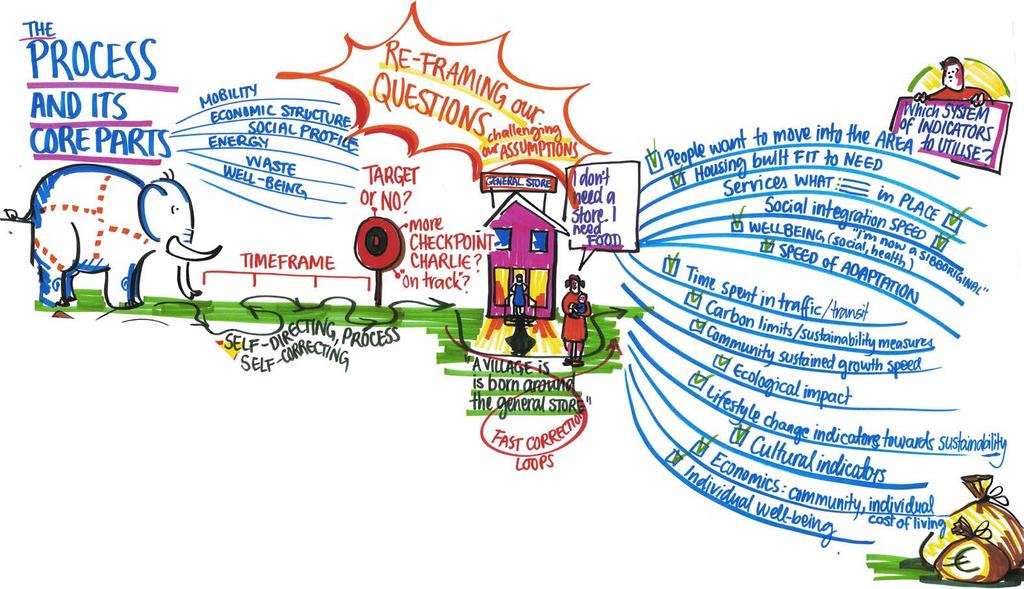 THE
PROCESS
AND ITS
CORE PARTS
MOBILITY
ECONOMIC STRUCTURE
SOCIAL PROFILE
ENERGY
WASTE
WELL-BEING
RE-FRAMING our
QUESTIONS
challenging
our ASSUMPTIONS
TARGET
or NO?
more
CHECKPOINT
CHARLIE?
"on track"?
TIMEFRAME
SELF-DIRECTING, PROCESS
SELF-CORRECTING
GENERAL STORE
I don't
need a
store. I
need
FOOD
"A VILLAGE is
is born around
the general STORE"
FAST CORRECTION
LOOPS
Which SYSTEM
of INDICATORS
to UTILISE?
People want to move into the AREA
Housing built FIT to NEED
Services WHAT in PLACE
Social integration SPEED
"I'm now a SIBBORIGINAL"
WELLBEING (social, health)
SPEED of ADAPTATION
Time spent in traffic/transit
Carbon limits/sustainability measures
Community sustained growth speed
Ecological impact
Lifestyle change indicators towards sustainability
Cultural indicators
Economics: community, individual
cost of living
Individual well-being
€